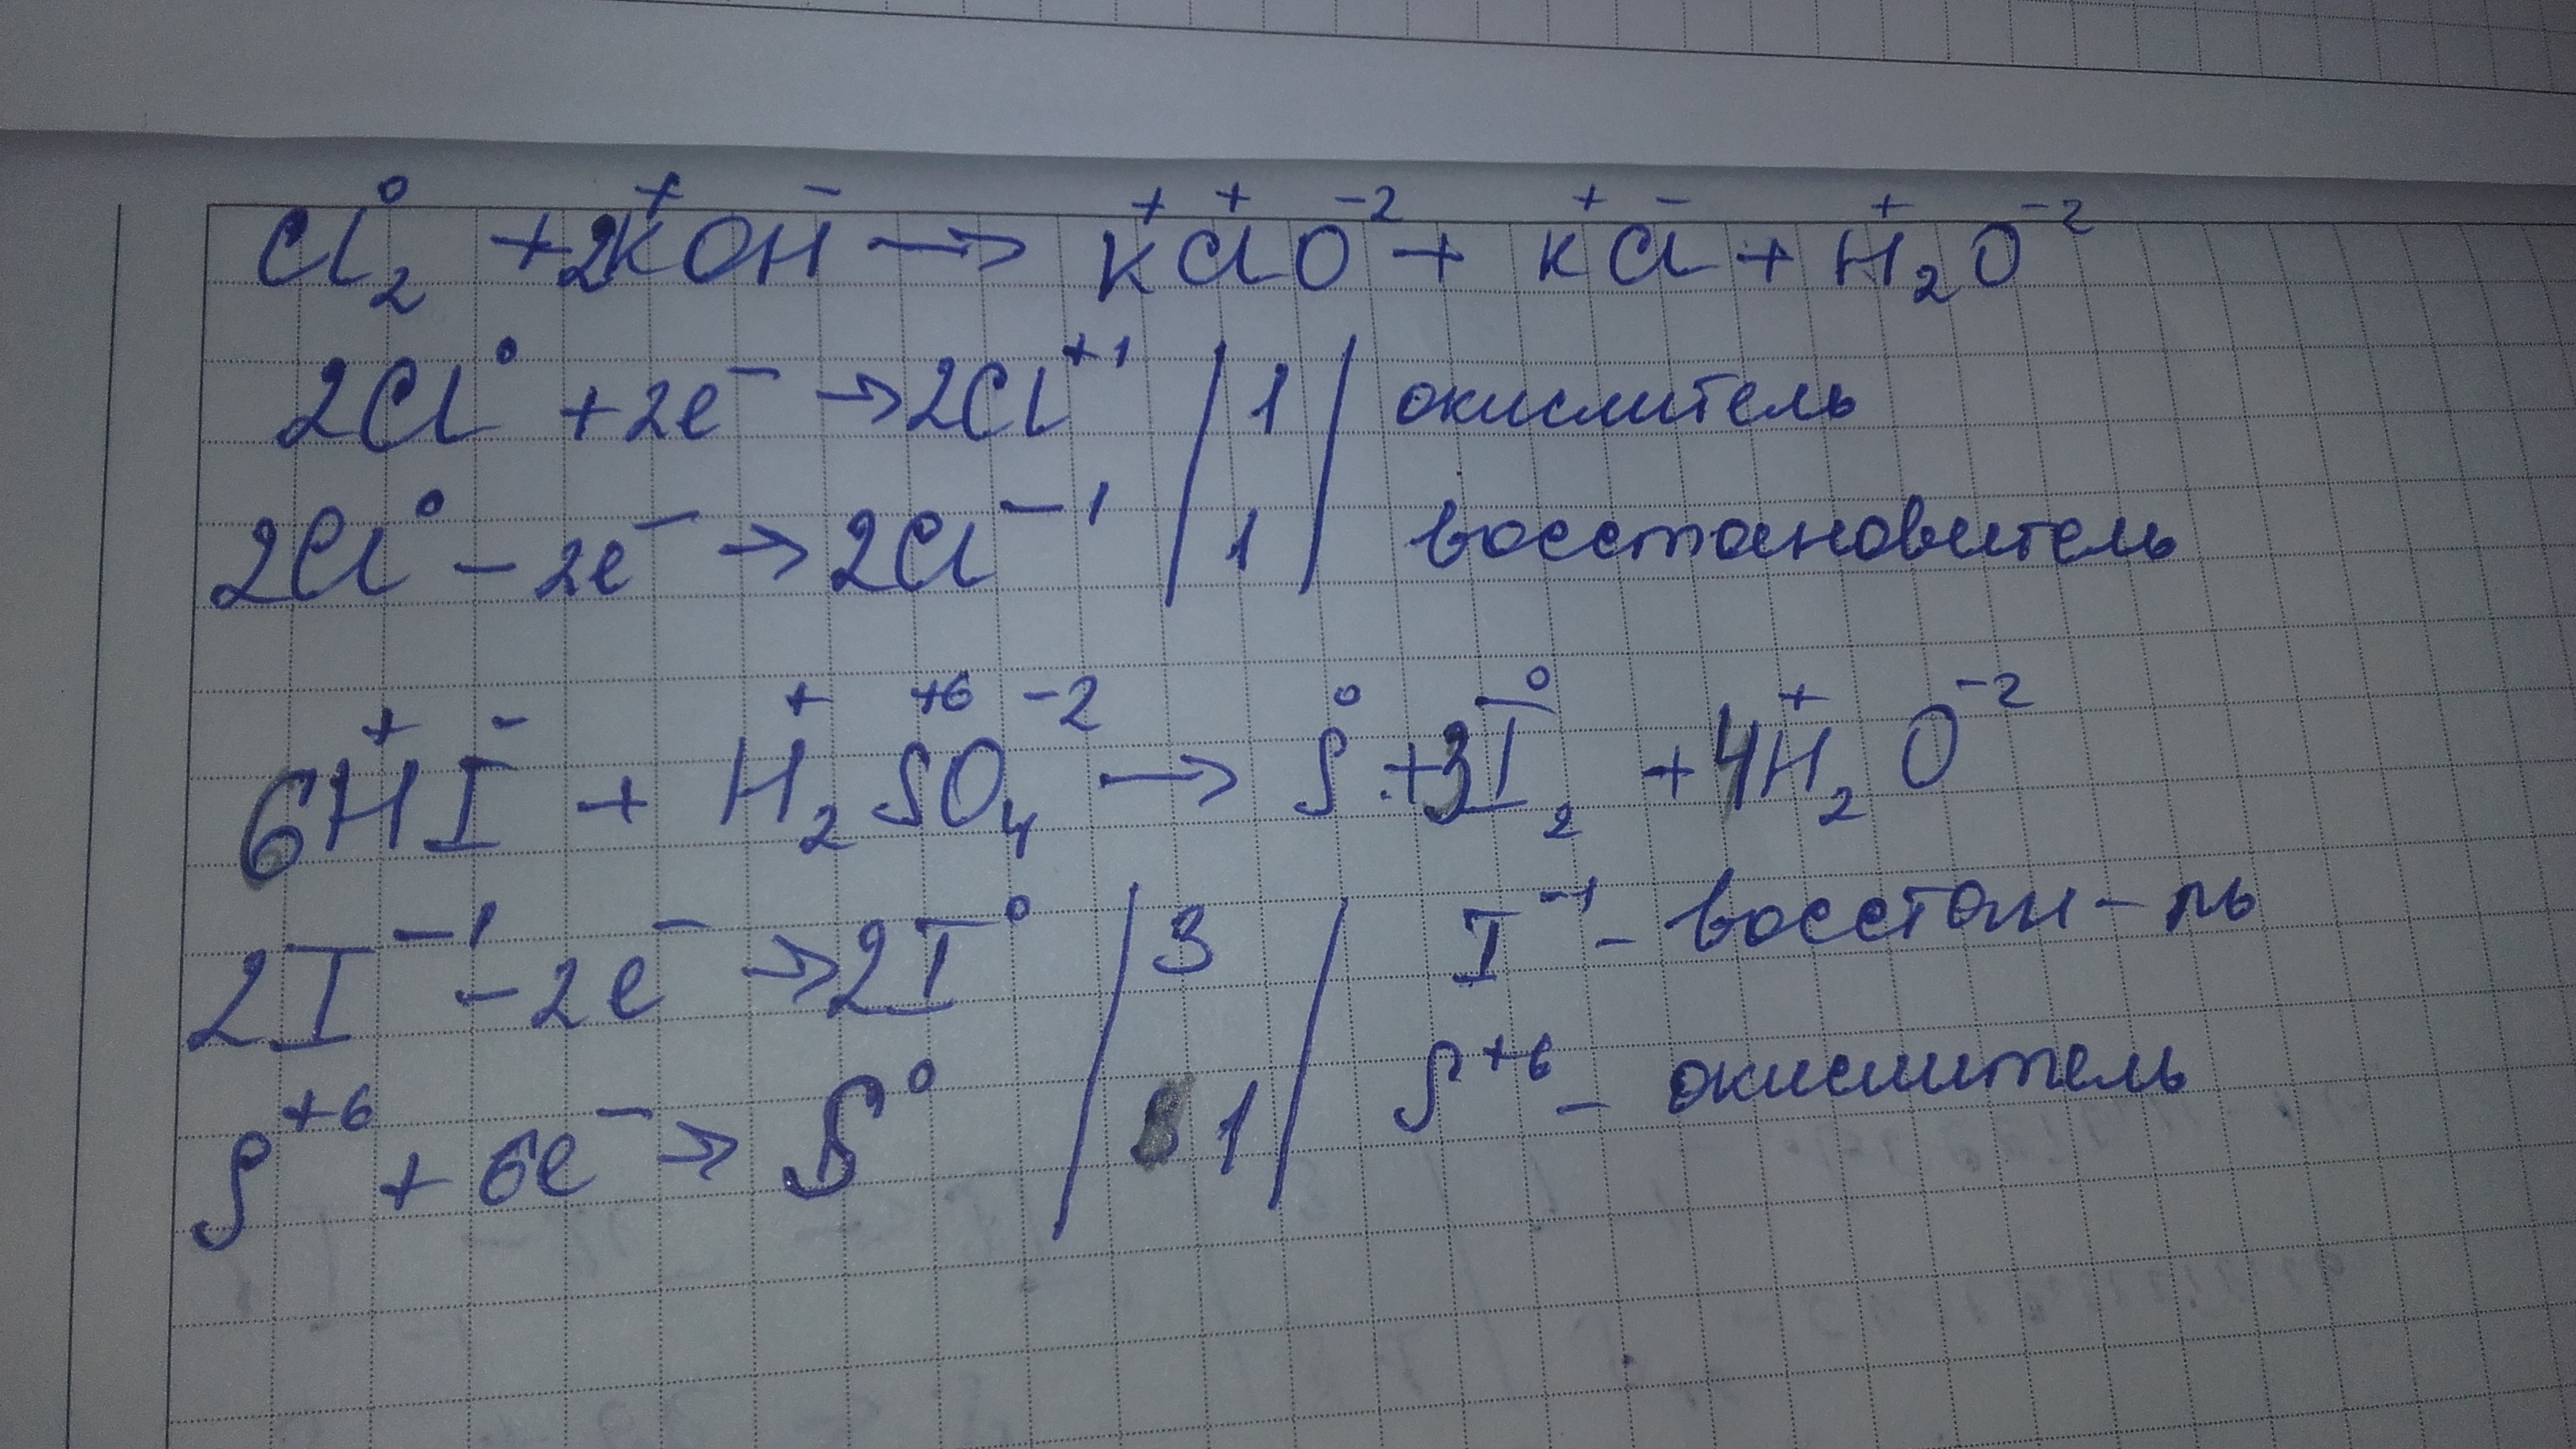 Cl₂⁰ + 2K⁺OH⁻ → K⁺Cl⁺O⁻² + K⁺Cl⁻ + H₂⁺O⁻²
2Cl⁰ + 2e⁻ → 2Cl⁺¹ | 1 | окислитель
2Cl⁰ – 2e⁻ → 2Cl⁻¹ | 1 | восстановитель
6H⁺I⁻ + H₂⁺S⁺⁶O₄⁻² → S⁰ + 3I₂⁰ + 4H₂⁺O⁻²
2I⁻¹ – 2e⁻ → 2I⁰ | 3 | I⁻¹ – восстан-ль
S⁺⁶ + 6e⁻ → S⁰ | 1 | S⁺⁶ – окислитель